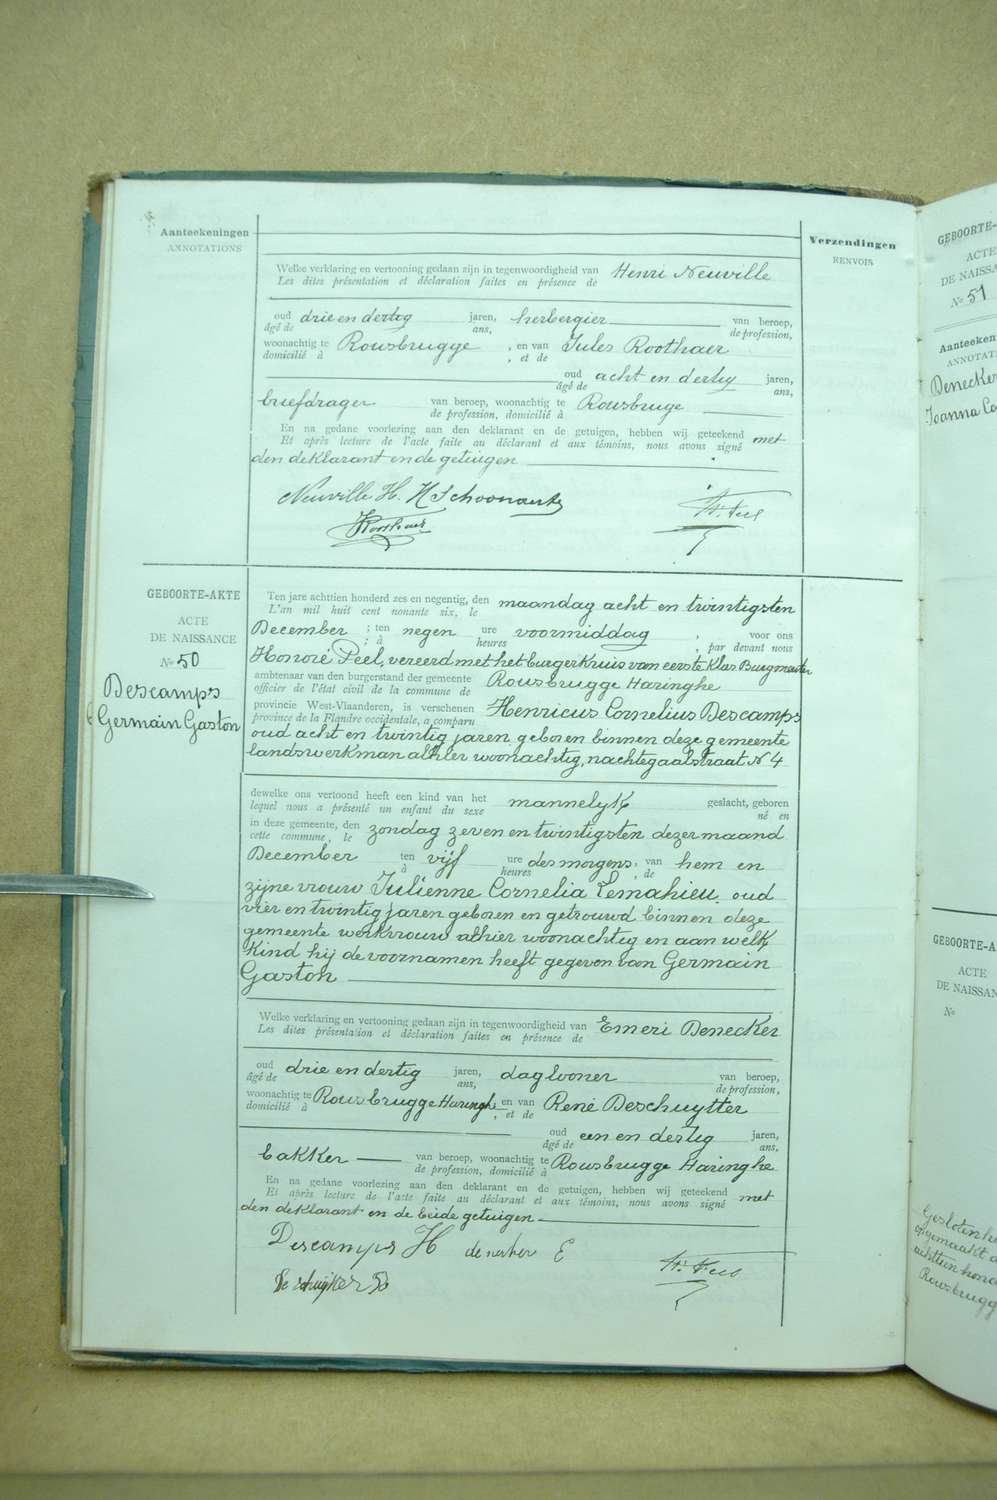 Aanteekeningen
ANNOTATIONS
Verzendingen
RENVOIS
Welke verklaring en vertooning gedaan zijn in tegenwoordigheid van Henri Neuville
Les dites présentation et déclaration faites en présence de
oud drie en dertig jaren, herbergier van beroep,
âgé de ans, de profession,
woonachtig te Rousbrugge , en van Jules Roothaer
domicilié à , et de
oud acht en dertig jaren,
âgé de ans,
briefdrager van beroep, woonachtig te Rousbruge
de profession, domicilié à
En na gedane voorlezing aan den deklarant en de getuigen, hebben wij geteekend met
Et après lecture de l'acte faite au déclarant et aux témoins, nous avons signé
den deklarant en de getuigen
Neuville H. H Schoonaert
JRoothaer H. Peel
GEBOORTE-AKTE
ACTE
DE NAISSANCE
No 50
Descamps
Germain Gaston
Ten jare achttien honderd zes en negentig, den maandag acht en twintigsten
L'an mil huit cent nonante six, le
December ; ten negen ure voormiddag , voor ons
; à heures par devant nous
Honoré Peel, vereerd met het burgerkruis van eerste klas Burgmeester
ambtenaar van den burgerstand der gemeente Rousbrugge Haringhe
officier de l'état civil de la commune de
provincie West-Vlaanderen, is verschenen Henricus Cornelius Descamps
province de la Flandre occidentale, a comparu
oud acht en twintig jaren geboren binnen deze gemeente
landswerkman alhier woonachtig, nachtegaalstraat N 4
dewelke ons vertoond heeft een kind van het mannelyk geslacht, geboren
lequel nous a présenté un enfant du sexe né en
in deze gemeente, den zondag zeven en twintigsten dezer maand
cette commune, le
December ten vijf ure des morgens, van hem en
à heures , de
zijne vrouw Julienne Cornelia Lemahieu, oud
vier en twintig jaren geboren en getrouwd binnen deze
gemeente werkvrouw alhier woonachtig en aan welk
kind hij de voornamen heeft gegeven van Germain
Gaston
Welke verklaring en vertooning gedaan zijn in tegenwoordigheid van Emeri Denecker
Les dites présentation et déclaration faites en présence de
oud drie en dertig jaren, daglooner van beroep,
âgé de ans, de profession,
woonachtig te Rousbrugge Haringhe en van René Deschuytter
domicilié à , et de
oud een en dertig jaren,
âgé de ans,
bakker van beroep, woonachtig te Rousbrugge Haringhe
de profession, domicilié à
En na gedane voorlezing aan den deklarant en de getuigen, hebben wij geteekend met
Et après lecture de l'acte faite au déclarant et aux témoins, nous avons signé
den deklarant en de beide getuigen
Descamps H E
H. Peel
GEBOORTE-
ACTE
DE NAISSAN
No 51
Aanteeken
ANNOTAT
Denecker
Joanna Co
GEBOORTE-A
ACTE
DE NAISSAN
No
Gesloten
opgemaakt
achttien hond
Rousbrugg